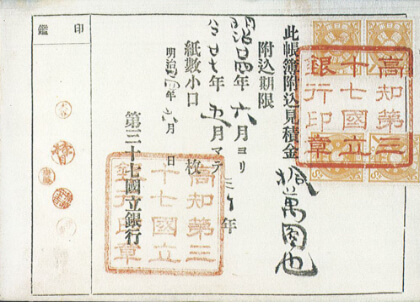 此帳簿附込見積金拾萬圓也
附込期限
明治廿四年六月ヨリ
仝廿七年五月マテ
三ケ年
紙數小口
枚
明治 年六月 日
第三十七國立銀行
印鑑
高知第三十七國立銀行印章
高知第三十七國立銀行印章